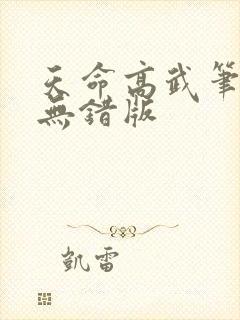 天命高武筆
無錯版
凱雷